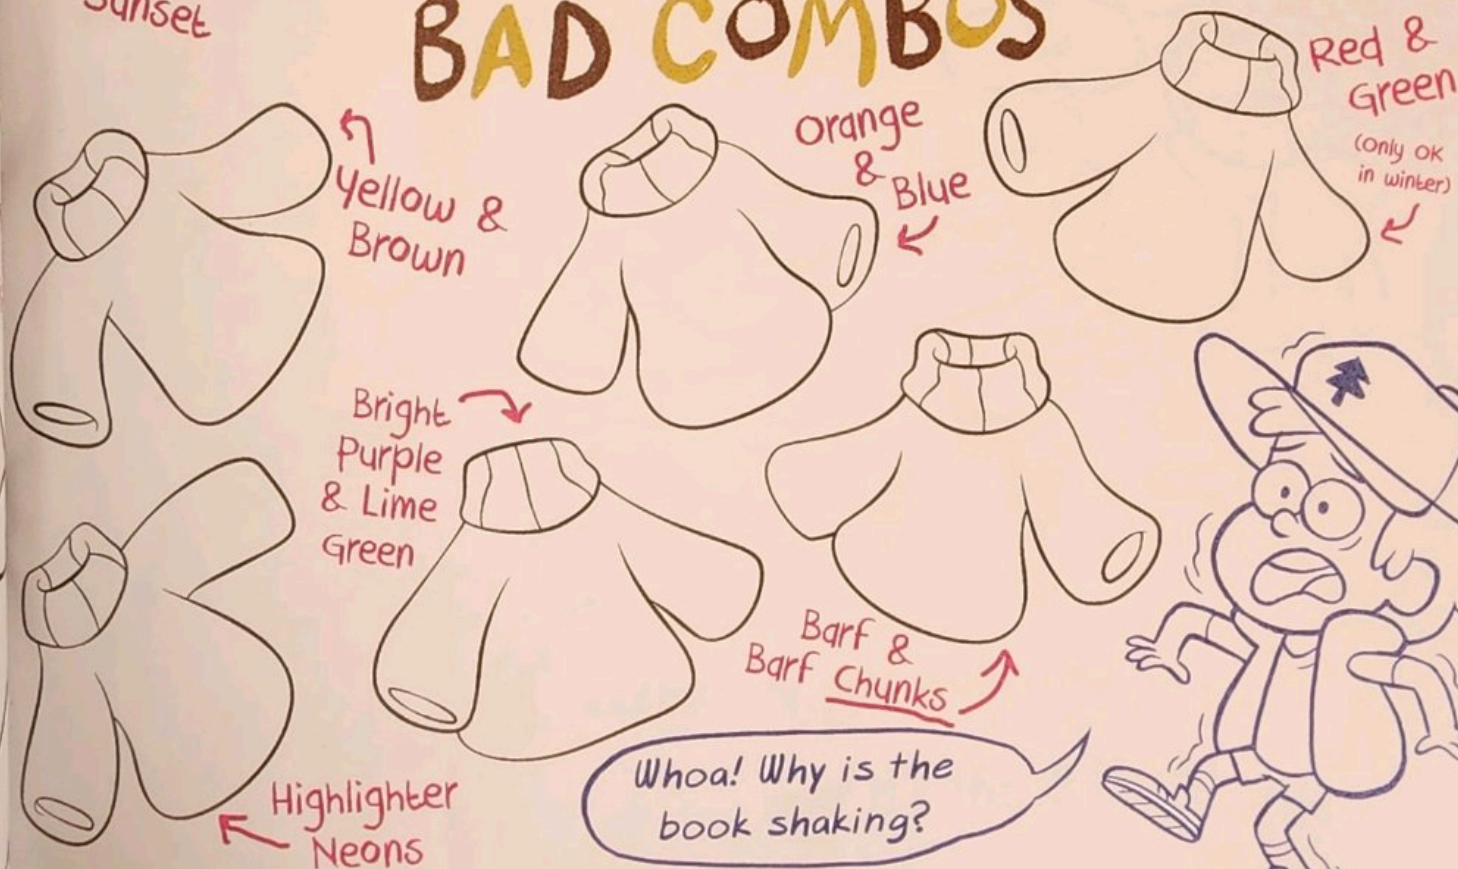 Sunset
BAD COMBOS
Yellow &
Brown
Orange
&
Blue
Red &
Green
(only ok
in winter)
Bright
Purple
& Lime
Green
Barf &
Barf Chunks
Highlighter
Neons
Whoa! Why is the
book shaking?